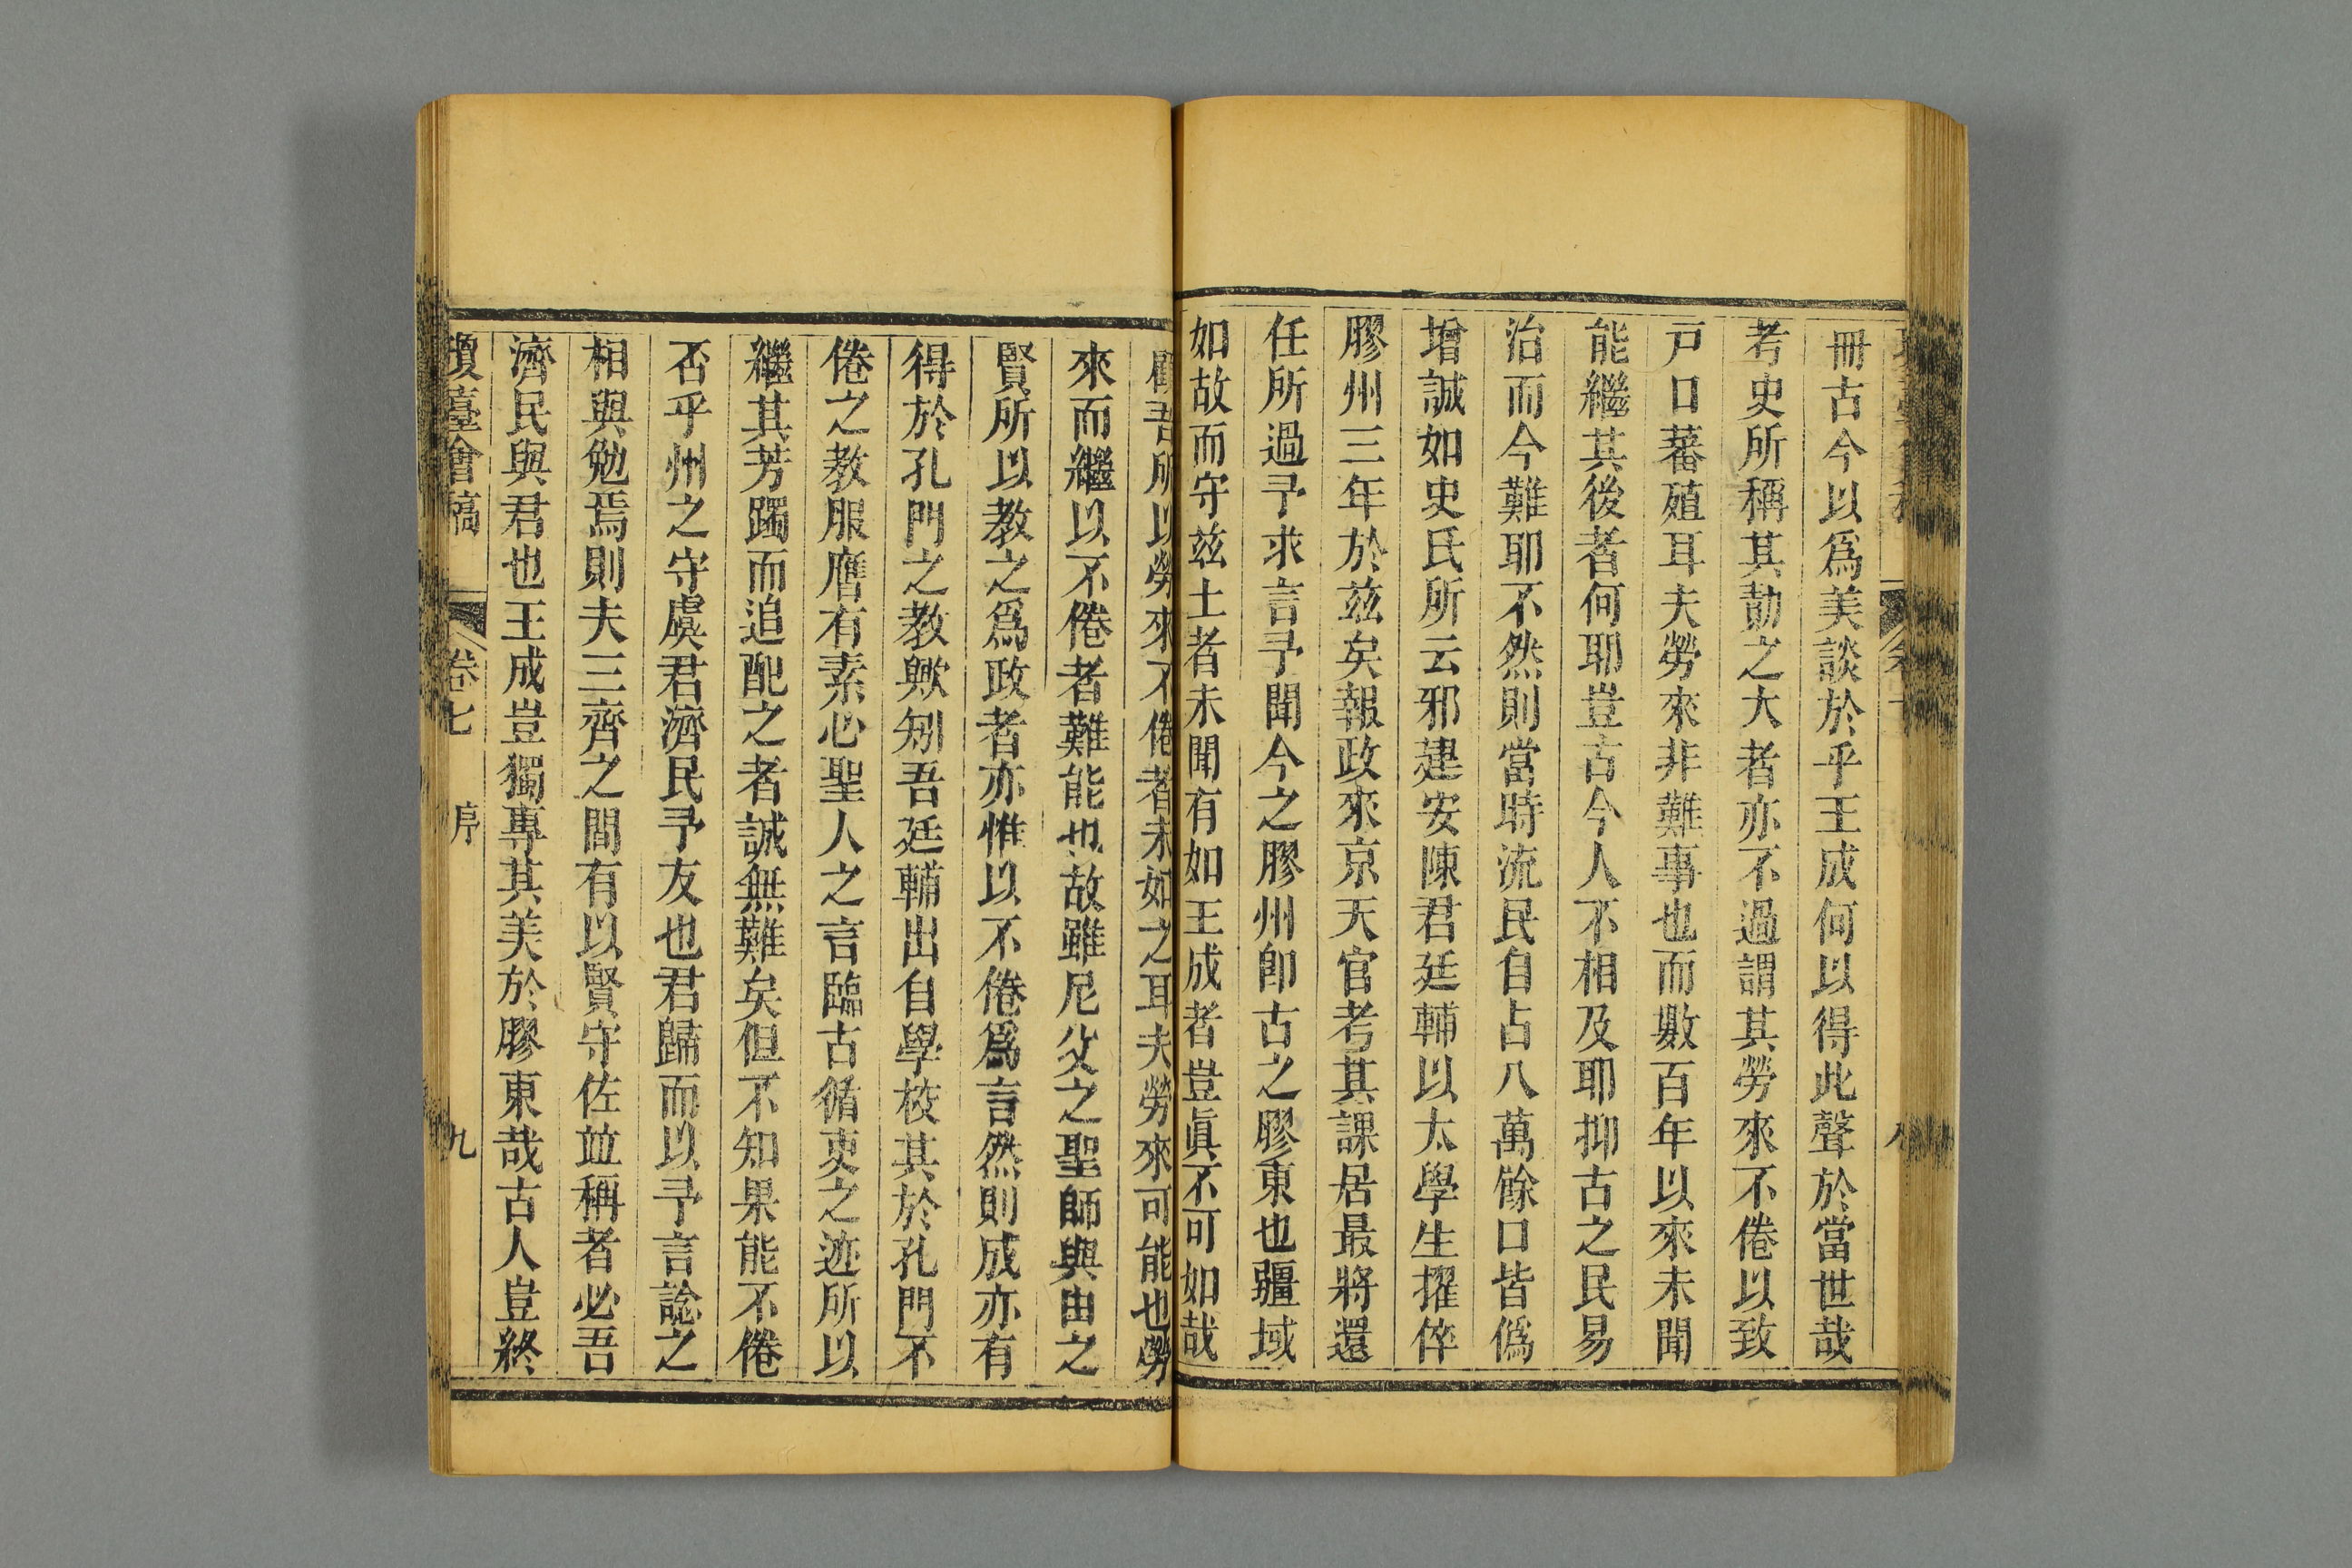 冊古今以爲美談於乎王成何以得此聲於當世哉
考史所稱其勣之大者亦不過謂其勞來不倦以致
戸口蕃殖耳夫勞來非難事也而數百年以來未聞
能繼其後者何耶豈古今人不相及耶抑古之民易
治而今難耶不然則當時流民自占八萬餘口皆僞
增誠如史氏所云邪建安陳君廷輔以太學生擢倅
膠州三年於玆矣報政來京天官考其課居最將還
任所過予求言予聞今之膠州卽古之膠東也疆域
如故而守玆土者未聞有如王成者豈眞不可如哉
顧吾所以勞來不倦者未如之耳夫勞來可能也勞
來而繼以不倦者難能也故雖尼父之聖師與由之
賢所以教之爲政者亦惟以不倦爲言然則成亦有
得於孔門之教歟矧吾廷輔出自學校其於孔門不
倦之教服膺有素必聖人之言臨古循吏之迹所以
繼其芳躅而追配之者誠無難矣但不知果能不倦
否乎州之守虞君濟民予友也君歸而以予言諗之
相與勉焉則夫三齊之間有以賢守佐並稱者必吾
濟民與君也王成豈獨專其美於膠東哉古人豈終
瓊臺會稿 卷七 序 九